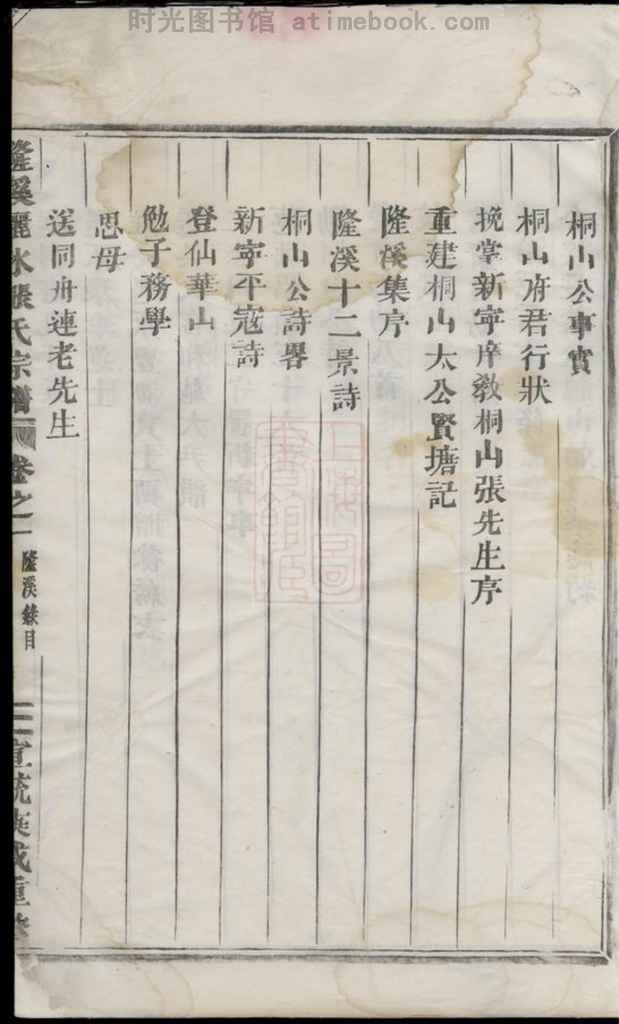 时光图书馆 atimebook.com
桐山公事實
桐山府君行狀
挽掌新寧庠教桐山張先生序
重建桐山太公賢塘記
隆溪集序
隆溪十二景詩
桐山公詩畧
新寧平寇詩
登仙華山
勉子務學
思母
送同舟連老先生
隆溪麗水張氏宗譜
卷之一
隆溪錄目
宣統庚戌重修